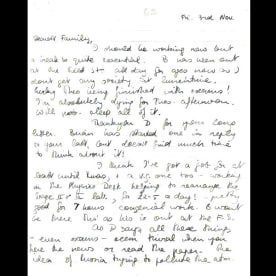 Fri. 3rd Nov.
Dearest Family,
I should be working now but
a break is quite essential. B was been out
at the field stn all day for ages (now as I
don't get any society at lunchtime.
Lucky Theo being finished with exams!
I'm absolutely dying for Tues. afternoon.
Will sleep all of it.
Thankyou D for your long
letter. has started one in reply
to your last, but doesn't find much time
to think about it!
I think I've got a job for at
least until Xmas, + a v. good one too - working
in the Physics Dept. helping to rearrange the
lab. for a day! - pretty
good for 7 hours congenial work. B won't
be there tho' as he is out at the F.S.
As D says all these things
- even exams - seem trivial when you
hear the news or read the paper. The
idea of trying to pollute the atm.